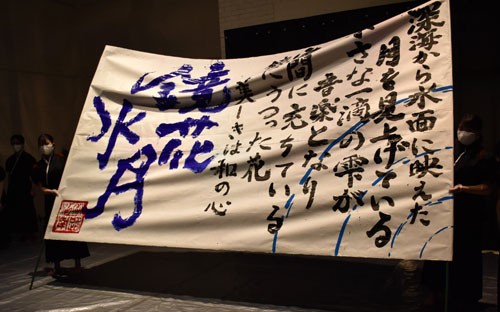 深海から水面に映えた
月を見上げている
小さな一滴の雫が
音楽となり
間に充ちている
にうつった花
美しきは和の心
鏡花
水月